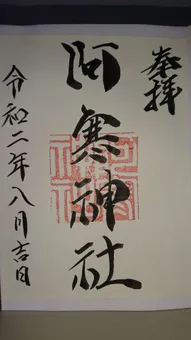 奉拝
阿寒神社
令和二年八月吉日